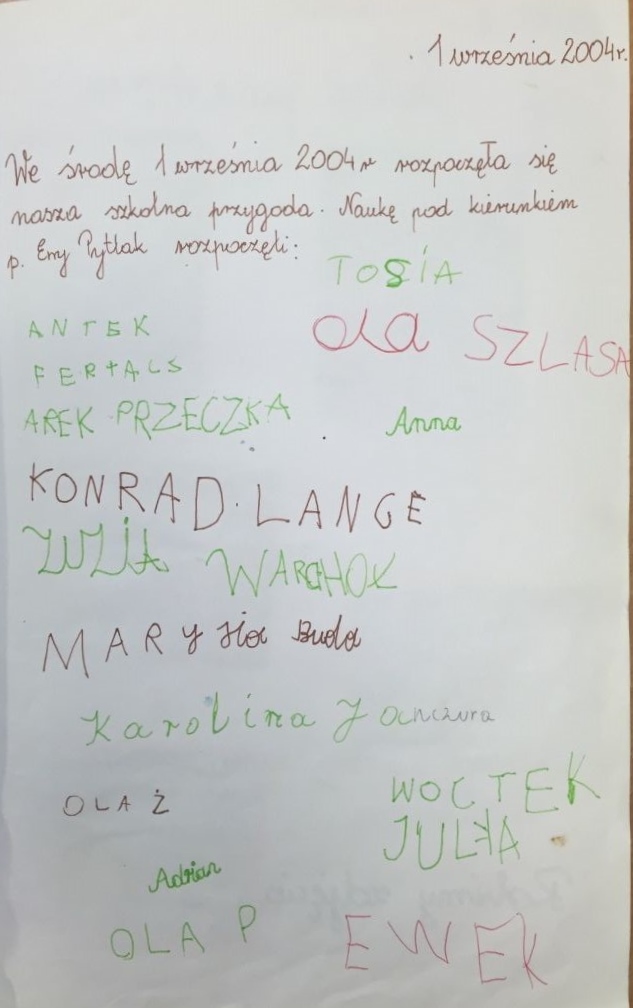 1 września 2004r.
We środę 1 września 2004r rozpoczęła się
nasza szkolna przygoda. Naukę pod kierunkiem
p. Emy Pytlak rozpoczęli:
TOSIA
ANTEK
OLA SZLASA
FERTĄLS
AREK PRZECZKA
Anna
KONRAD. LANGE
ZUZIA WARCHOK
MARYsia Buda
Karolina Janczura
OLA Ż
WOCTEK
JULKA
Adrian
OLA P
EWEK